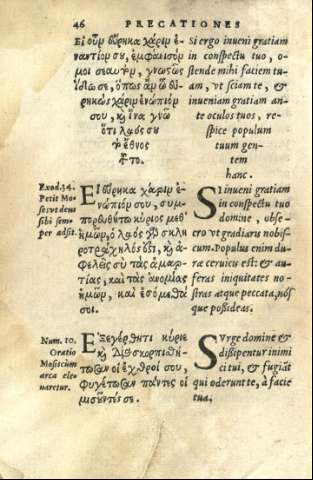 46 PRECATIONES
Εἰ οὖν εὕρηκα χάριν ἐ-
ναντίον σου, ἐμφάνισόν
μοι σεαυτὸν, γνωστῶς
ἴδω σε, ὅπως ἂν ὦ εὑ-
ρηκὼς χάριν ἐνώπιόν
σου, καὶ ἵνα γνῶ
ὅτι λαός σου
τὸ ἔθνος
τοῦτο.
Si ergo inueni gratiam
in conspectu tuo, o-
stende mihi faciem tu-
am, vt sciam te, &
inueniam gratiam an-
te oculos tuos, re-
spice populum
tuum gen-
tem
hanc.
Exod.34.
Petit Mo-
ses vt deus
sibi sem-
per adsit.
Εἰ εὕρηκα χάριν ἐ-
νώπιόν σου, συμ-
πορευθήτω κύριος μεθ᾽
ἡμῶν, ὁ λαὸς γὰρ σκλη
ροτράχηλός ὅτι, καὶ ἀ-
φελεῖς σὺ τὰς ἁμαρ-
τίας, καὶ τὰς ἀνομίας
ἡμῶν, καὶ ἐσόμεθά
σοι.
SI inueni gratiam
in conspectu tuo
domine, obse-
cro vt gradiaris nobis-
cum. Populus enim du-
ra ceruicis est: & au-
feras iniquitates no-
stras atque peccata, nós
que poßideas.
Num. 10.
Oratio
Mosis cum
arca ele-
uaretur.
Ἐξεγέρθητι κύριε
καὶ διασκορπισθή-
τωσαν οἱ ἐχθροί σου,
φυγέτωσαν πάντες οἱ
μισοῦντές σε.
SVrge domine &
dißipentur inimi
ci tui, & fugiāt
qui oderunt te, à facie
tua.